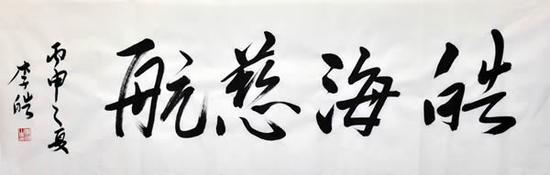 皓海慈航
丙申之夏
李皓